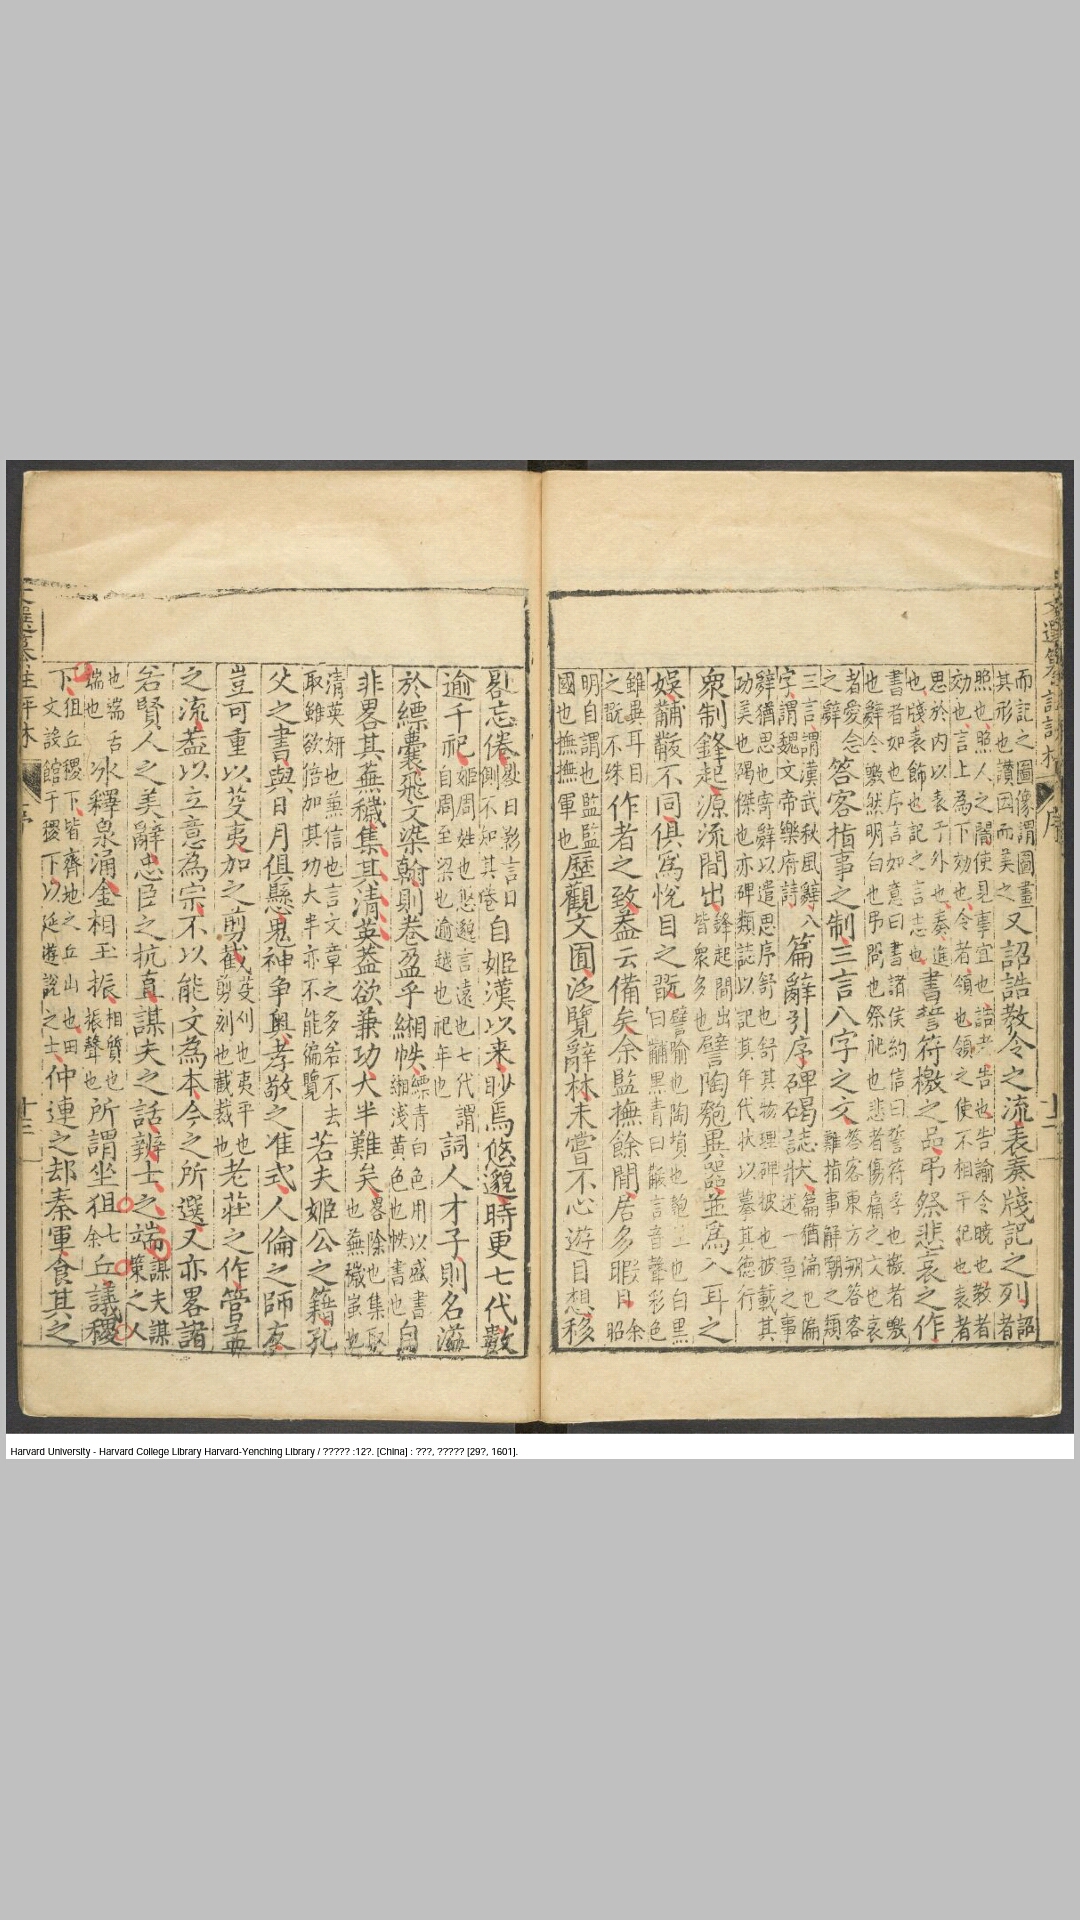 而記之圖像謂圖畫
其形也讚因而美之又詔誥教令之流表奏牋記之列詔者
照也照人之闇使見事宜也誥者告也告諭令曉也教者
効也言上為下効也令者領也領之使不相干紀也表者
思於內以表于外也奏進
也牋表飾也記之言志也書誓符檄之品弔祭悲哀之作
書者如也序言如意曰書諸侯約信曰誓符孚也檄者皦
也辭令皦然明白也弔問也祭祀也悲者傷痛之文也哀
者愛念
之辭答客指事之制三言八字之文答客東方朔答客
難指事解嘲之類
三言謂漢武秋風辭八
字謂魏文帝樂府詩篇辭引序碑碣誌狀篇猶徧也徧
述一章之事
辭猶思也寄辭以遣思序舒也舒其物理碑披也披載其
功美也碣傑也亦碑類誌以記其年代狀以摹其德行
衆制鋒起源流間出鋒起間出
皆衆多也譬陶匏異器並為入耳之
娛黼黻不同俱為悅目之翫譬喻也陶塤也匏笙也白黑
曰黼黑青曰黻言音聲彩色
雖異耳目
之翫不殊作者之致蓋云備矣余監撫餘閒居多暇日余
昭
明自謂也監監
國也撫撫軍也歷觀文囿泛覽辭林未嘗不心遊目想移
晷忘倦晷日影言日
側不知其倦自姬漢以来眇焉悠邈時更七代數
逾千祀姬周姓也悠邈言遠也七代謂
自周至梁也逾越也祀年也詞人才子則名溢
於縹囊飛文染翰則卷盈乎緗帙縹青白色用以盛書
緗淺黃色也帙書也自
非畧其蕪穢集其清英蓋欲兼功大半難矣畧除也集取
也蕪穢虽也
清英妍也兼信也言文章之多若不去
取雖欲倍加其功大半亦不能徧覽若夫姬公之籍孔
父之書與日月俱懸鬼神争奥孝敬之准式人倫之師友
豈可重以芟夷加之剪截芟刈也夷平也
剪刻也截裁也老莊之作管孟
之流蓋以立意為宗不以能文為本今之所選又亦畧諸
若賢人之美辭忠臣之抗直謀夫之話辨士之端謀夫謀
策之人
也端舌
端也冰釋泉涌金相玉振相質也
振聲也所謂坐狙丘議稷
下狙丘稷下皆齊地之丘山也田
文設館于稷下以延遊說之士仲連之却秦軍食其之
Harvard University - Harvard College Library Harvard-Yenching Library / ????? :12?. [China] : ???, ????? [29?, 1601].